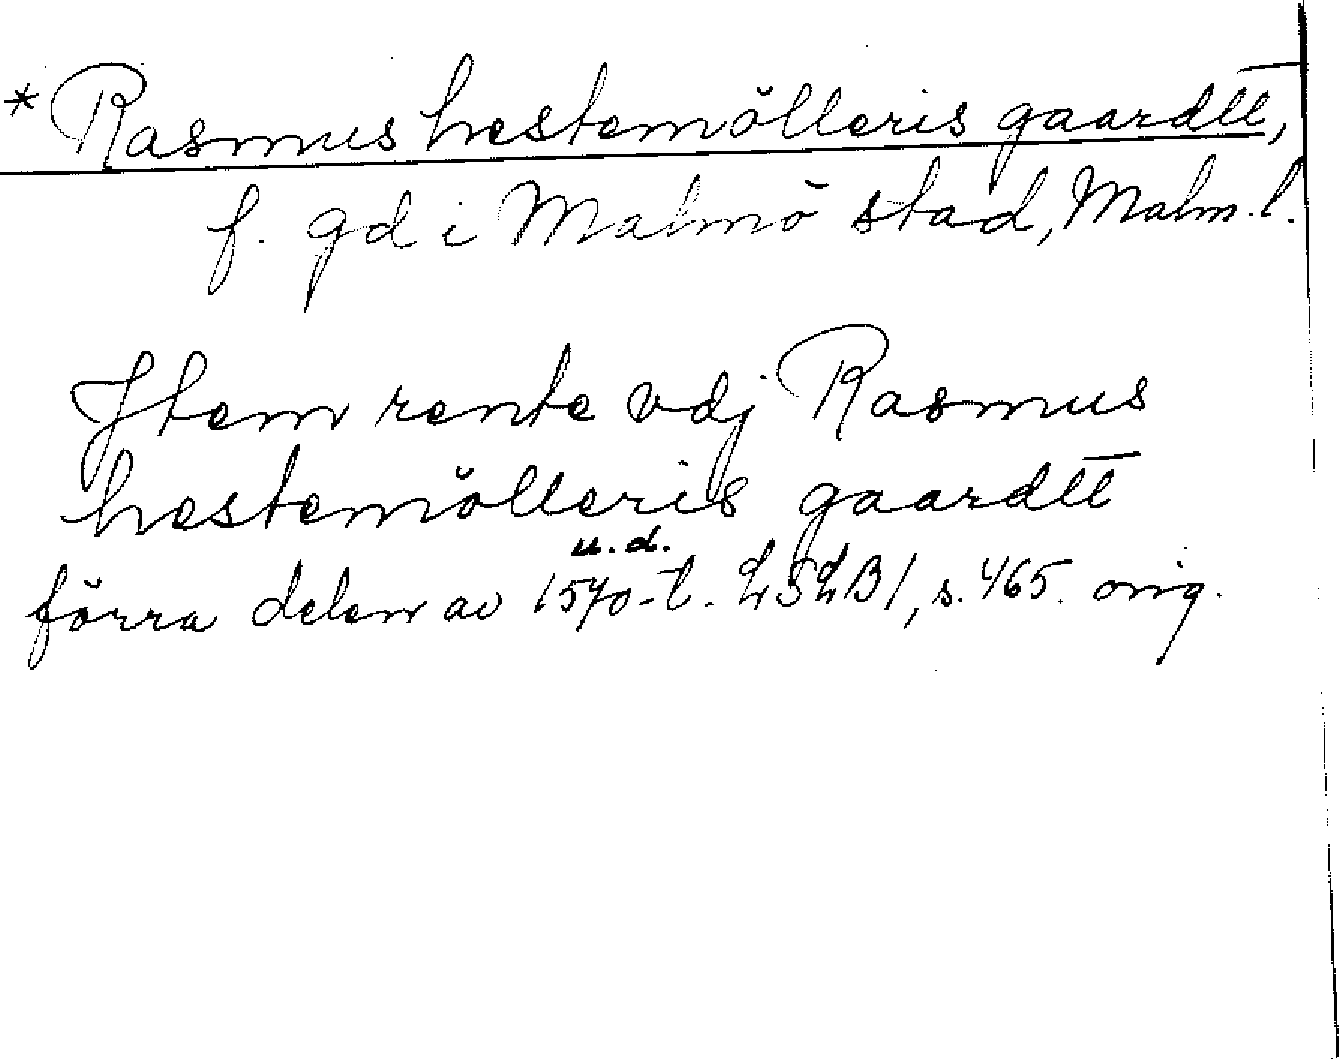 * Rasmus hestemölleris gaardtt,
f. gd i Malmö stad, Malm. l.
Jtem rente vdj Rasmus
hestemölleris gaardtt
u. d.
förra delen av 1570-t. LSLB1, s. 465. orig.